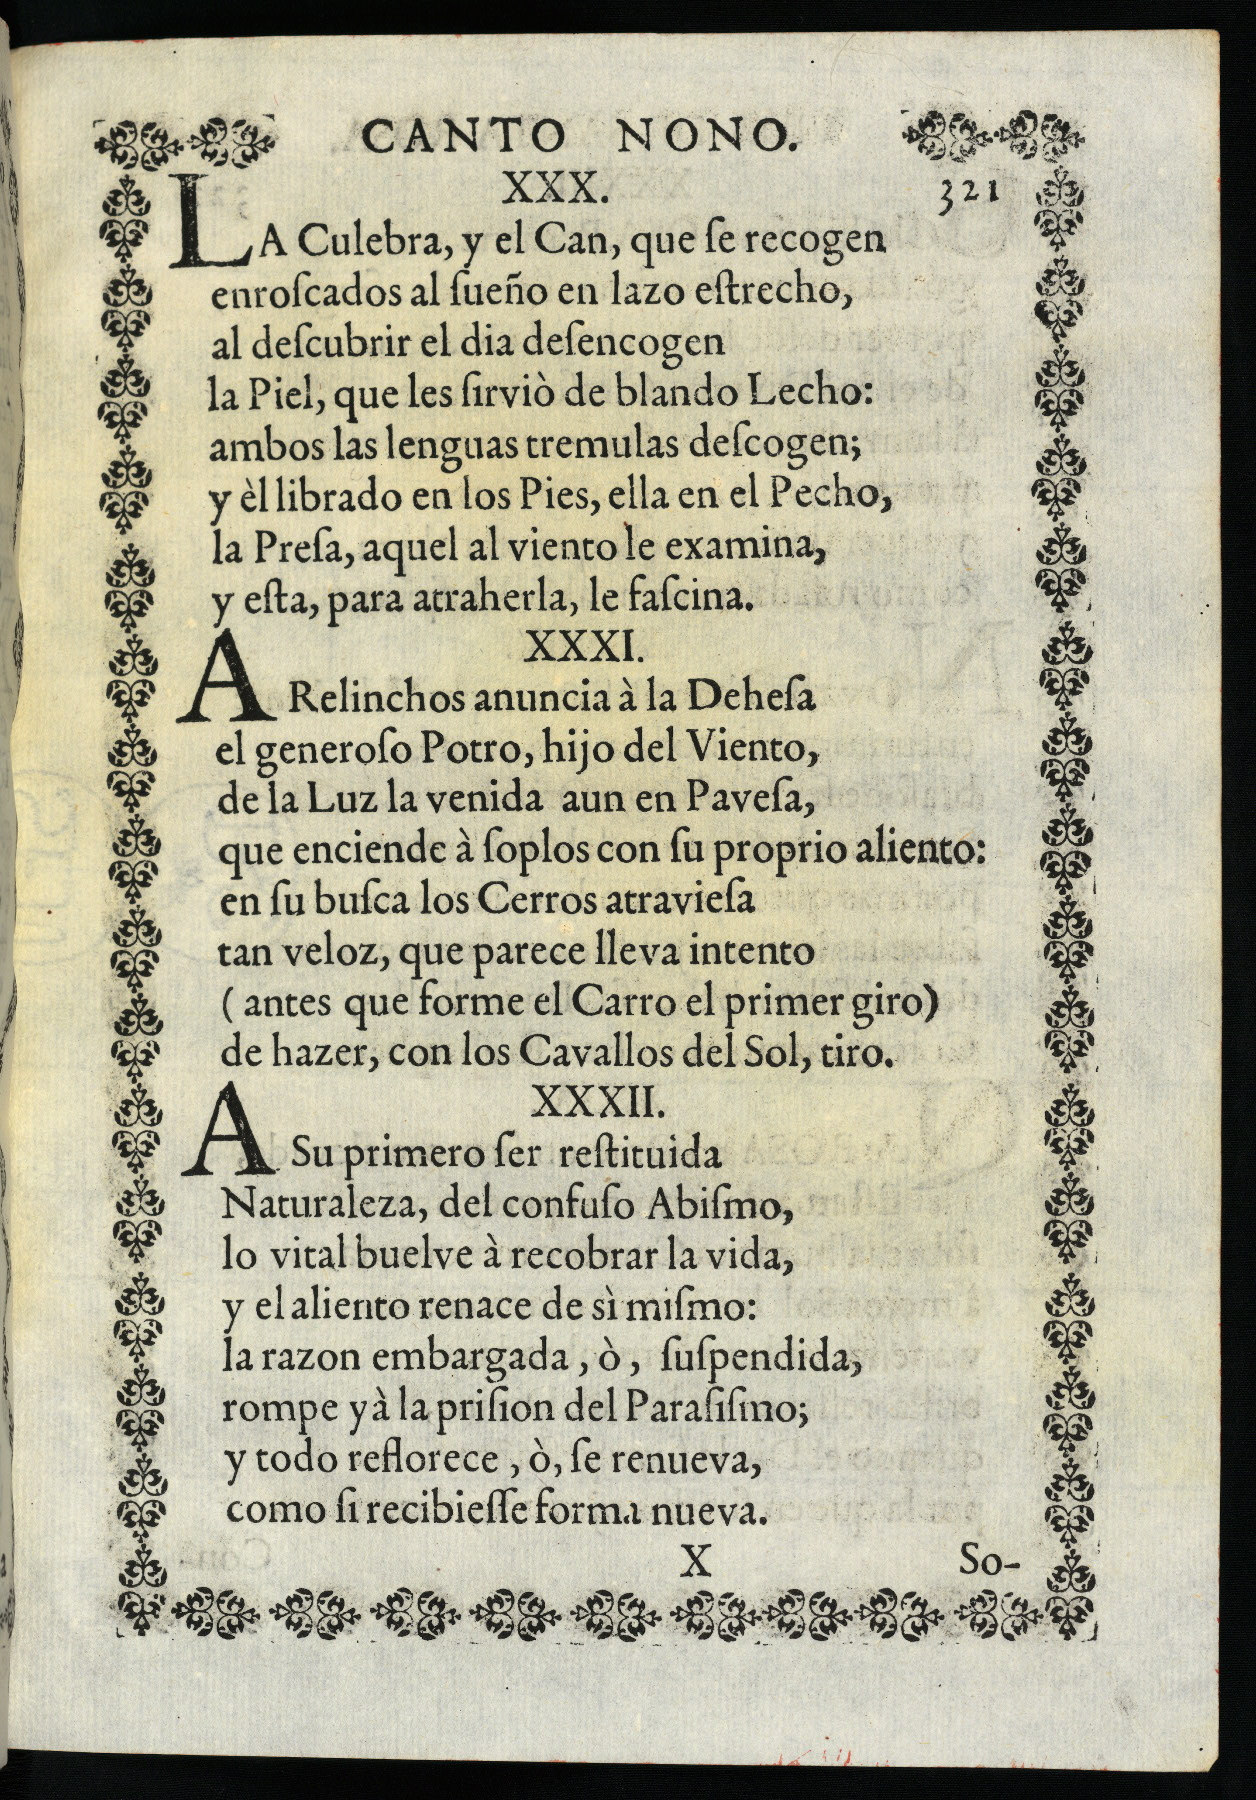 CANTO NONO.
XXX.
321
LA Culebra, y el Can, que ſe recogen
enroſcados al ſueño en lazo eſtrecho,
al deſcubrir el dia deſencogen
la Piel, que les ſirviò de blando Lecho:
ambos las lenguas tremulas deſcogen;
y èl librado en los Pies, ella en el Pecho,
la Preſa, aquel al viento le examina,
y eſta, para atraherla, le faſcina.
XXXI.
A Relinchos anuncia à la Deheſa
el generoſo Potro, hijo del Viento,
de la Luz la venida aun en Paveſa,
que enciende à ſoplos con ſu proprio aliento:
en ſu buſca los Cerros atravieſa
tan veloz, que parece lleva intento
( antes que forme el Carro el primer giro)
de hazer, con los Cavallos del Sol, tiro.
XXXII.
A Su primero ſer reſtituida
Naturaleza, del confuſo Abiſmo,
lo vital buelve à recobrar la vida,
y el aliento renace de sì miſmo:
la razon embargada , ò , ſuſpendida,
rompe yà la priſion del Paraſiſmo;
y todo reflorece , ò, ſe renueva,
como ſi recibieſſe forma nueva.
X
So-